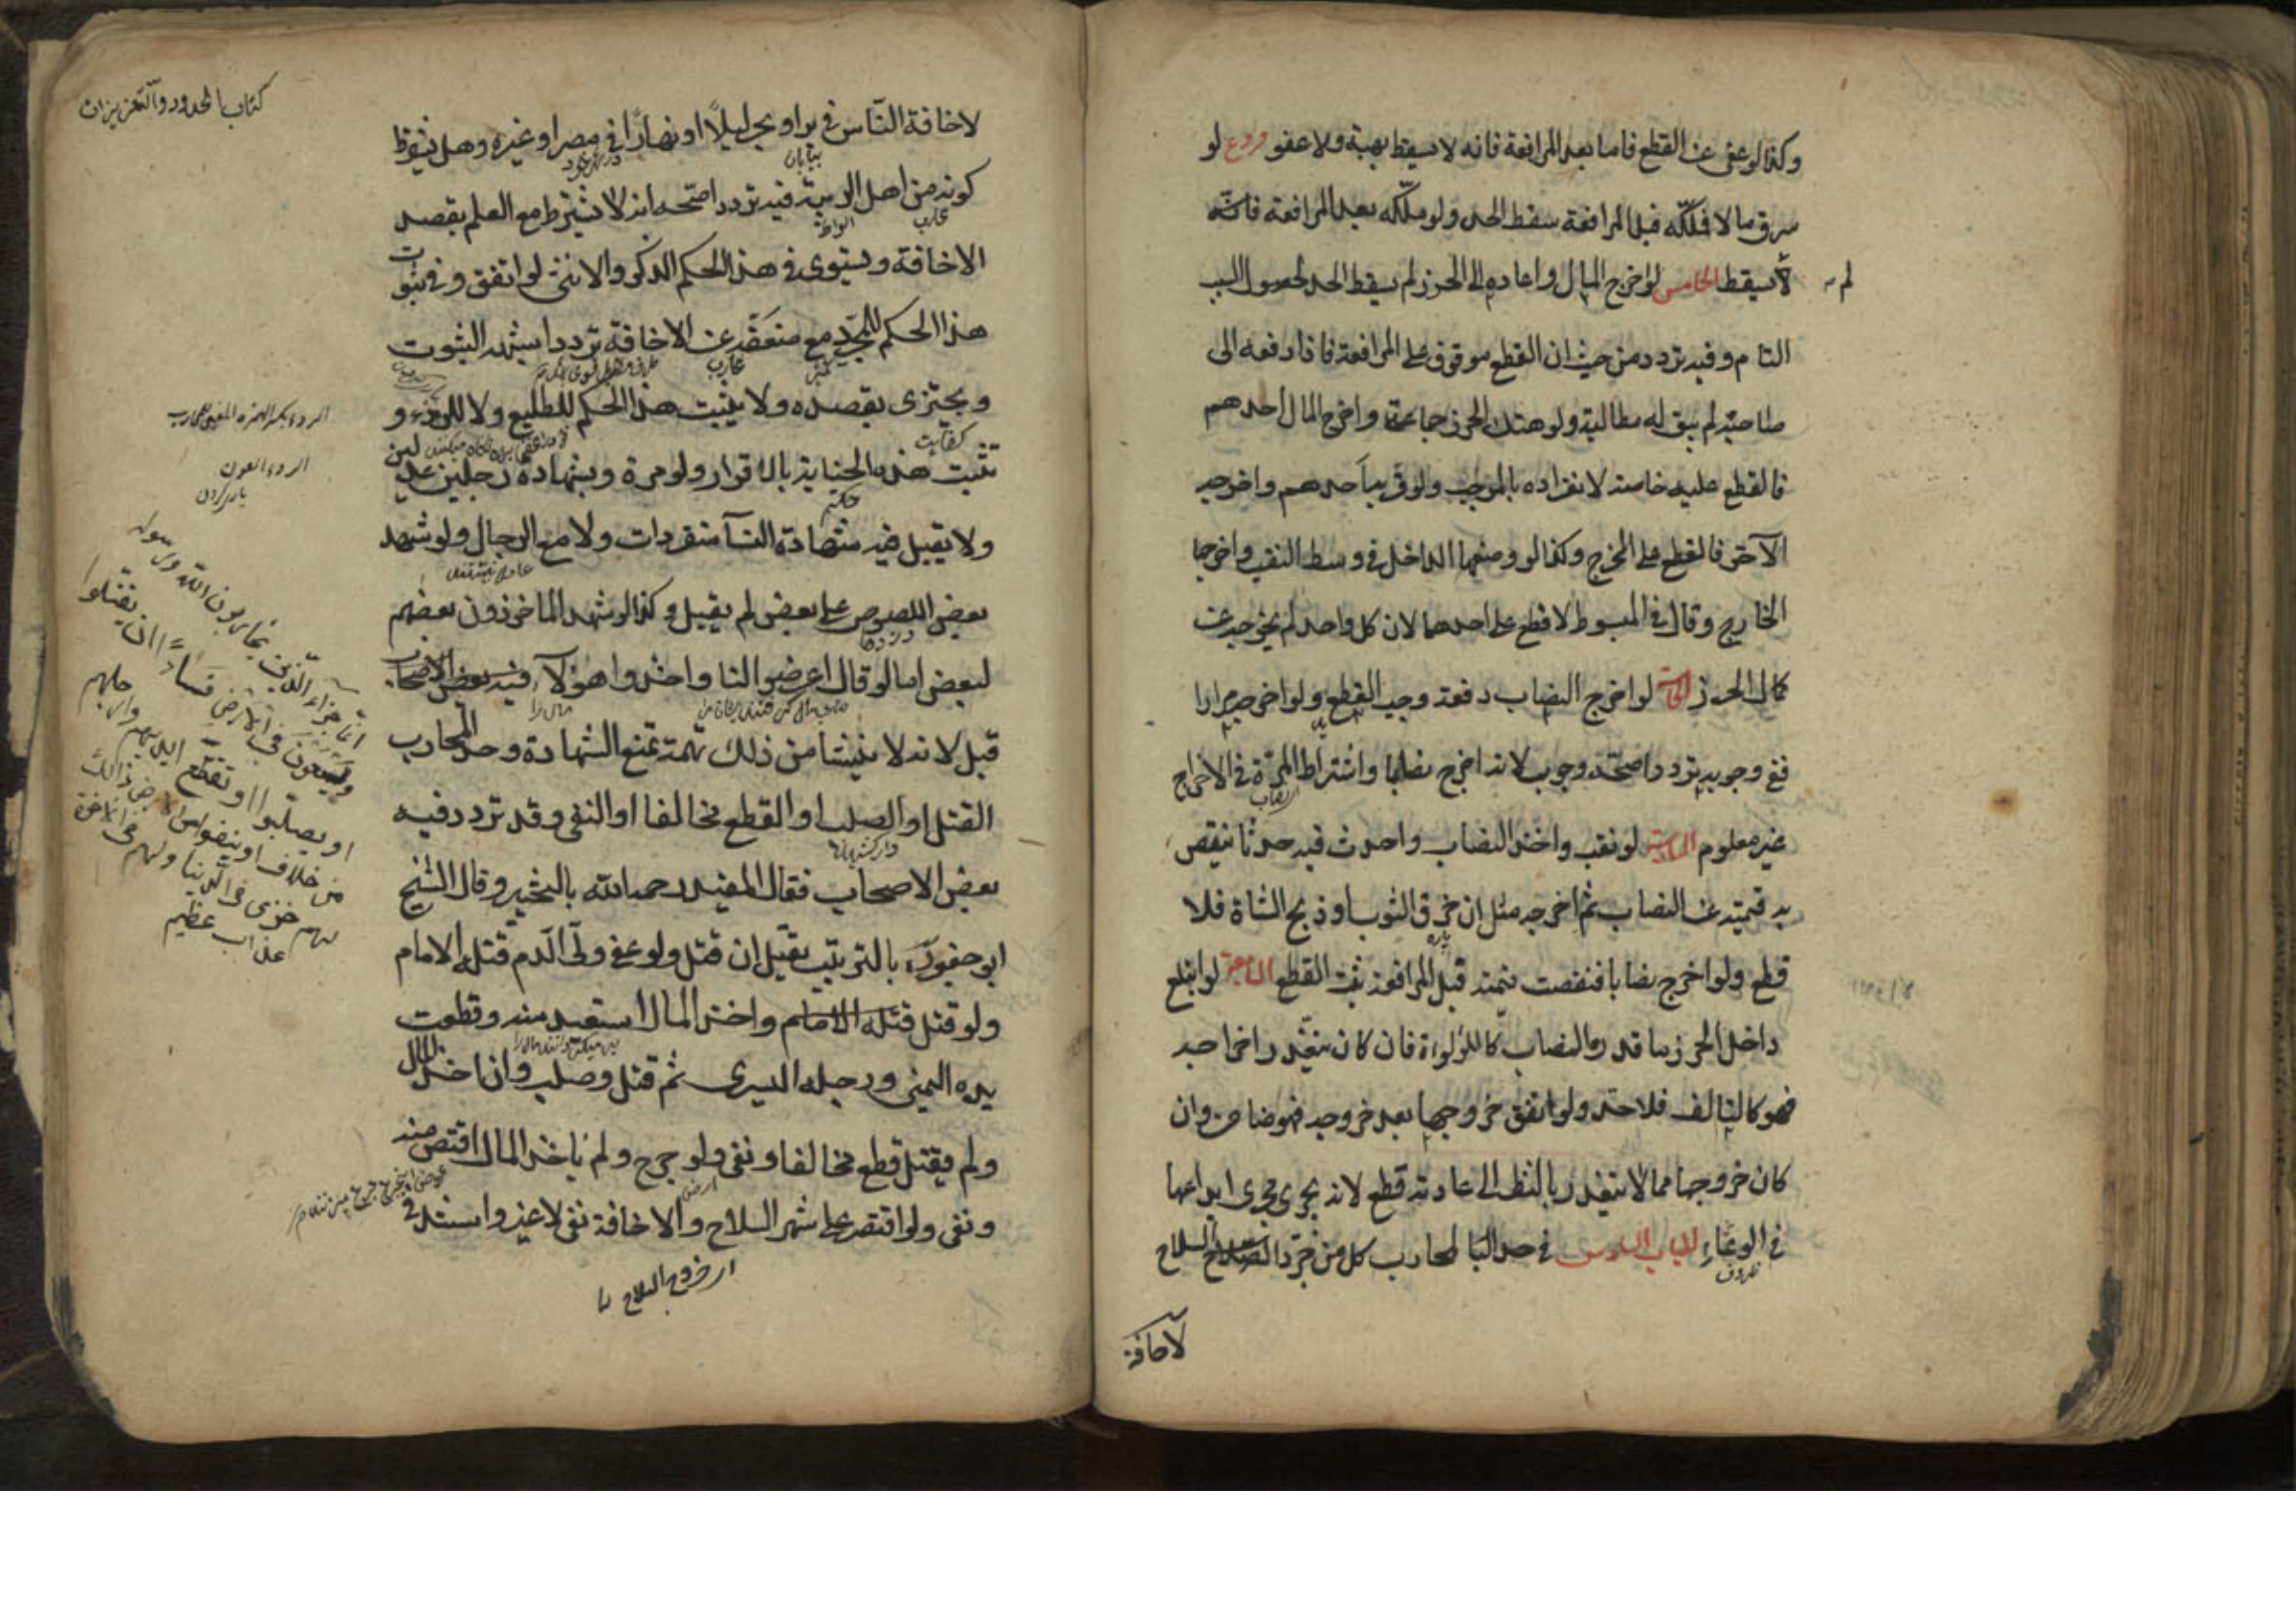 وكذا لو عفى عن القطع فاما بعد المرافعة فانه لا يسقط بهبة ولا عفو فروع لو
سرق مالا فملكه قبل المرافعة سقط الحد ولو ملكه بعد المرافعة
لم
لا يسقط الخامس لو اخرج المال واعاده الى الحرز لم يسقط الحد لحصول السبب
التام وفيه تردد من حيث ان القطع موقوف على المرافعة فاذا دفعه الى
صاحبه لم يبق له مطالبة ولو هتك الحرز جماعة واخرج المال احدهم
فالقطع عليه خاصة لانفراده بالموجب ولو قربه احدهم واخرجه
الآخر فالقطع على المخرج وكذا لو وضعها الداخل في وسط النقب واخرجها
الخارج وقال في المبسوط لا قطع على احدهما لان كل واحد لم يخرجه عن
كمال الحرز لو اخرج النصاب دفعة وجب القطع ولو اخرجه مرارا
ففى وجوبه تردد اصحّه وجوب لانه اخرج نصابا واشتراط المرّة في الاخراج
غير معلوم السادسة لو نقب واخذ النصاب واحدث فيه حدثا ينقص
به قيمته عن النصاب ثم اخرجه مثل ان خرق الثوب او ذبح الشاة فلا
پاره
قطع ولو اخرج نصابا فنقصت قيمته قبل المرافعة ثبت القطع السابعة لو ابتلع
داخل الحرز ما قدره النصاب كاللؤلؤة فان كان يتعذر اخراجه
فهو كالتالف فلا حد ولو اتفق خروجها بعد خروجه فهو ضامن وان
كان خروجها مما لا يتعذر بالنظر الى عادته قطع لانه يجرى مجرى ايداعها
في الوعاء الباب السادس في حد المحارب كل من جرّد السلاح
ظروف
لاخافة
كتاب الحدود والتعزيرات
لاخافة النّاس في بر او بحر ليلًا او نهارًا في مصر او غيره وهل يشترط
بيابان
كونه من اهل الريبة فيه تردد اصحّه انه لا يشترط مع العلم بقصد
الاخافة ويستوى في هذا الحكم الذكر والانثى لو اتفق وفي ثبوت
هذا الحكم للمجرّد مع ضعفه عن الاخافة تردد اشبهه الثبوت
محارب
ويجتزى بقصده ولا يثبت هذا الحكم للطليع ولا للردء و
كفايت
تثبت هذه الجناية بالاقرار ولو مرة وبشهادة رجلين عدلين
ولا يقبل فيه شهادة النسآ منفردات ولا مع الرجال ولو شهد
بعض اللصوص على بعض لم يقبل وكذا لو شهد الماخوذون بعضهم
دزدها
لبعض اما لو قال اعرضوا لنا واخذوا هؤلآء
قبل لانه لا ينشأ من ذلك تهمة تمنع الشهادة وحد المحارب
القتل او الصلب او القطع مخالفا او النفى وقد تردد فيه
بعض الاصحاب فقال المفيد رحمه الله بالتخيير وقال الشيخ
ابو جعفر ره بالترتيب يقتل ان قتل ولو عفى ولّى الدّم قتله الامام
ولو قتل واخذ المال استعيد منه وقطعت
يده اليمنى ورجله اليسرى ثم قتل وصلب وان اخذ المال
ولم يقتل قطع مخالفا ونفى ولو جرح ولم ياخذ المال اقتص منه
ونفى ولو اقتصر على شهر السلاح والاخافة نفى لا غير واستدل في
الردء بكسر الهمزه المعين للمحارب
الردء العون
يارى كردن
انما جزاء الّذين يحاربون الله ورسوله
ويسعون في الارض فسادًا ان يقتلوا
او يصلبوا او تقطّع ايديهم وارجلهم
من خلاف او ينفوا من الارض ذالك
لهم خزى في الدنيا ولهم في الآخرة
عذاب عظيم